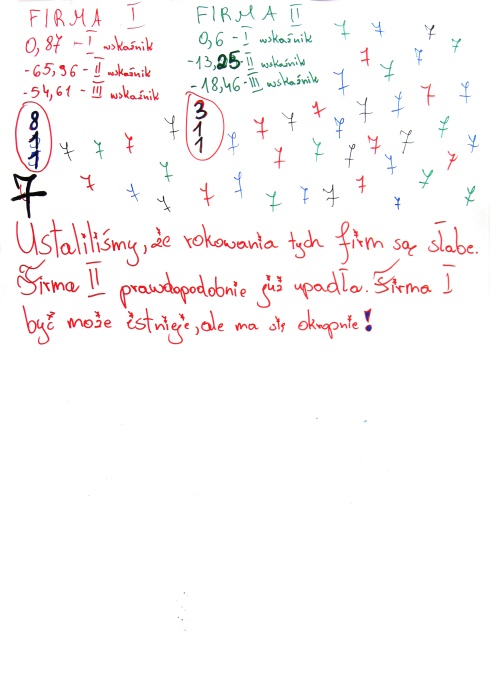 FIRMA I
0,87 - I wskaźnik
-65,96 - II wskaźnik
-54,61 - III wskaźnik
FIRMA II
0,6 - I wskaźnik
-13,25 - II wskaźnik
-18,46 - III wskaźnik
8
7
3
1
1
7
7 7 7 7 7 7 7 7 7 7 7 7 7 7 7 7 7 7 7 7
Ustaliliśmy, że rokowania tych firm są słabe.
Firma II prawdopodobnie już upadła. Firma I
być może istnieje, ale ma się okropnie!